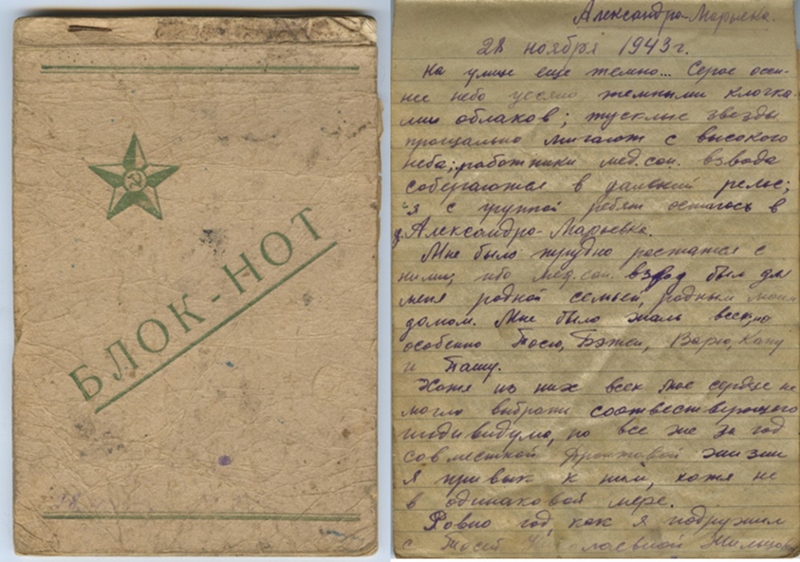 БЛОК-НОТ
Александро-Марьевка.
28 ноября 1943 г.
На улице еще темно... Серое осен-
нее небо усеяно темными клочка-
ми облаков; тусклые звезды
прощально мигают с высокого
неба; работники мед. сан. взвода
собераются в дальний рейс;
я с группой ребят остаюсь в
Александро-Марьевке.
Мне было трудно расстатся с
ними, ибо мед. сан. взвод был для
меня родной семьей, родным моим
домом. Мне было жаль всех, но
особенно Тосю, Бэтси, Варю, Капу
и Пашу.
Хотя из них всех мое сердце не
могло выбрать соответствующего
индивидума, но все же за год
совместной фронтовой жизни
я привык к ним, хотя не
в одинаковой мере.
Ровно год, как я подружил
с Тосей